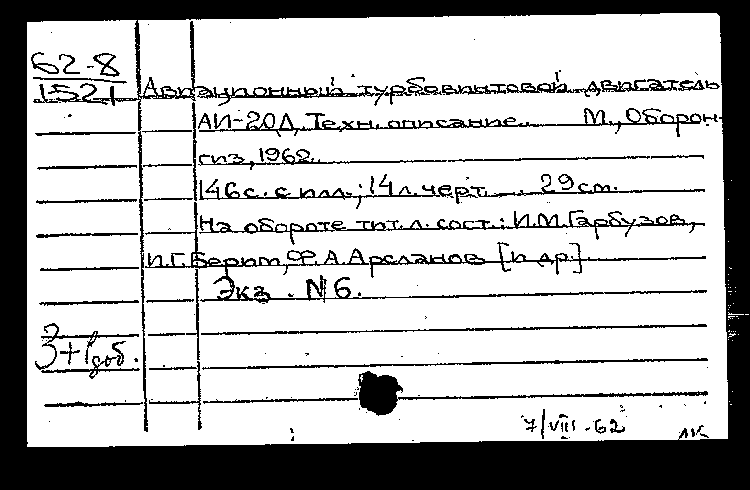 62-8
1521
Авиационный турбовинтовой двигатель
АИ-20Д. Техн. описание. М., Оборон-
гиз, 1962.
146с. с илл.; 14л. черт. 29см.
На обороте тит. л. сост.: И.М. Гарбузов,
И.Г. Берим, Ф.А. Арсланов [и др.]
Экз. №6.
3+1 доб.
7/VIII-62